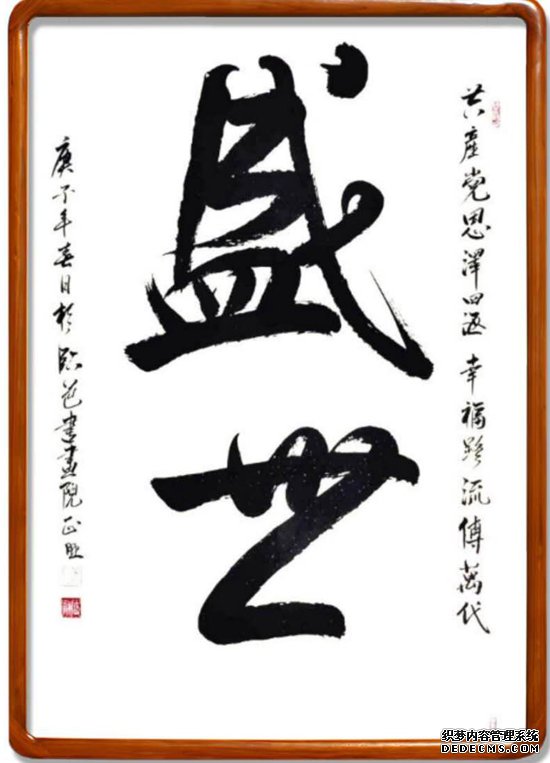 共產党恩澤四海 幸福路流傳萬代
盛世
庚子年春日於臨邑書畫院正照
织梦内容管理系统
DEDECMS.COM